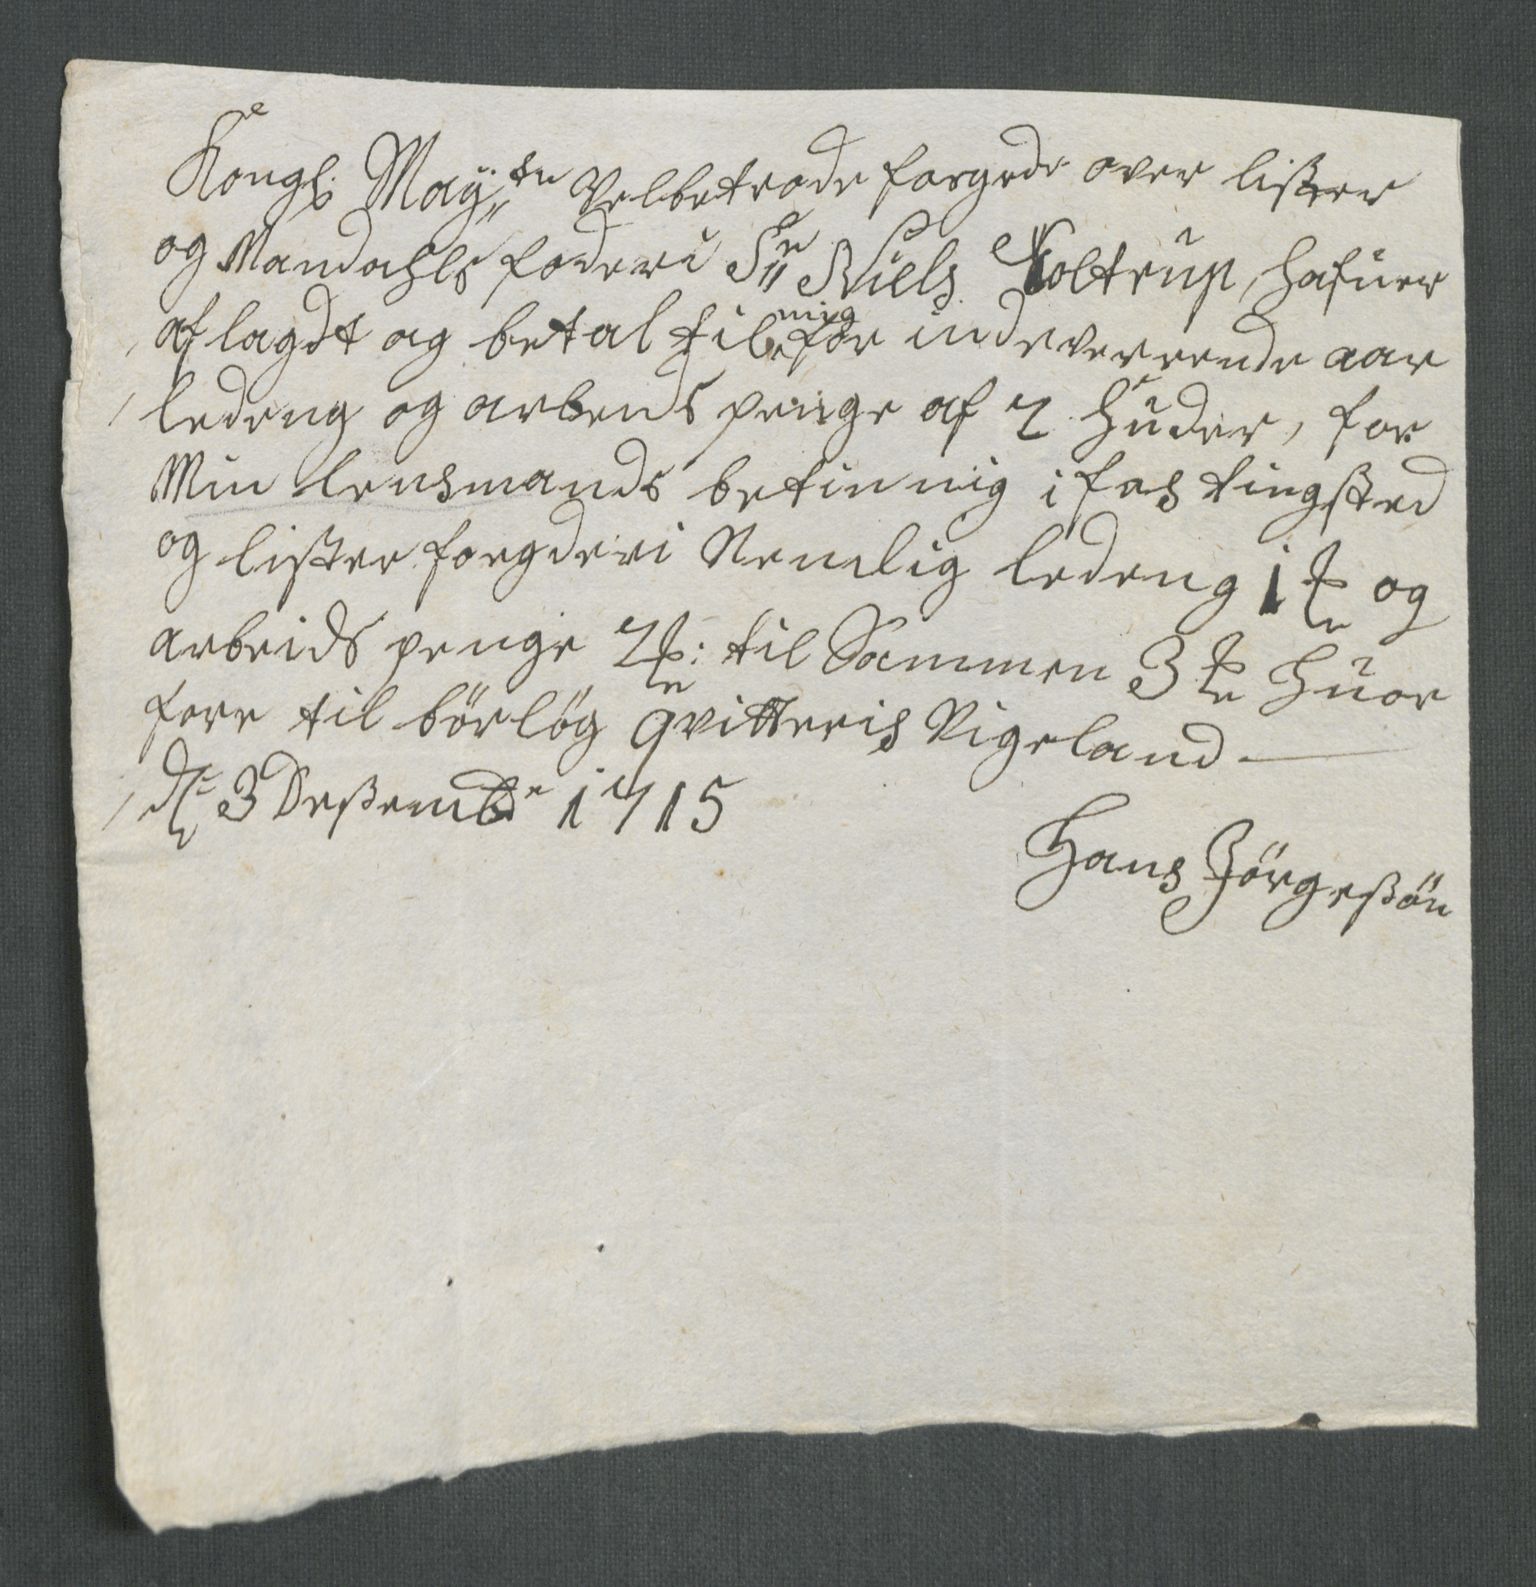 Kongl: May:ts Velbetrode forgede over lister
og Mandahls foderi Sr Niels Toltrup, hafuer
aflagdt og betal til mig for indeverende aar
ledeng og arbends penge af 2 huder, for
Min lensmands betinnig i fas tingsted
og lister forgderi Nemlig ledeng 1 og
arbeids penge 2: til Sammen 3 huor
fore til börlög qvitteris Vigeland
d: 3 Dessembr 1715
Hans Jörgessön